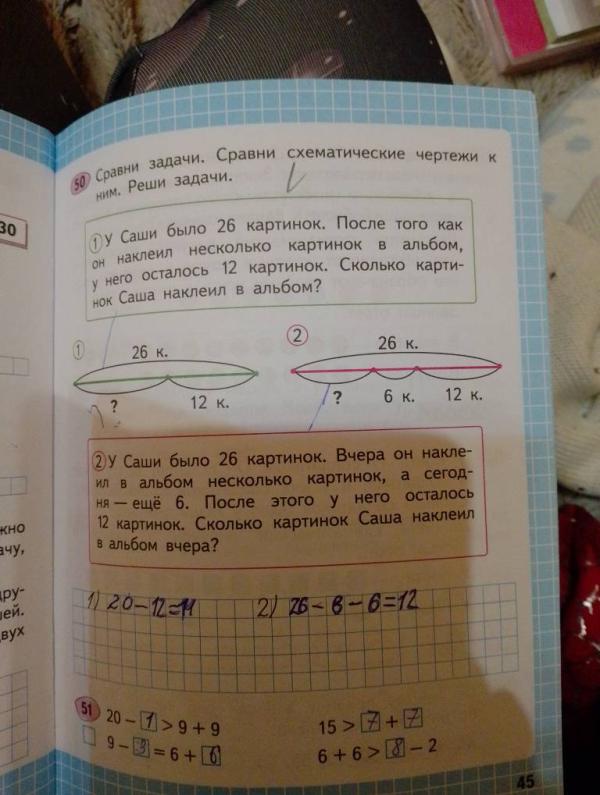 50 Сравни задачи. Сравни схематические чертежи к
ним. Реши задачи.
30
① У Саши было 26 картинок. После того как
он наклеил несколько картинок в альбом,
у него осталось 12 картинок. Сколько карти-
нок Саша наклеил в альбом?
① 26 к.
? 12 к.
② 26 к.
? 6 к. 12 к.
② У Саши было 26 картинок. Вчера он накле-
ил в альбом несколько картинок, а сегод-
ня — ещё 6. После этого у него осталось
12 картинок. Сколько картинок Саша наклеил
в альбом вчера?
жно
ачу,
дру-
шей.
двух
1) 20-12=14
2) 26-8-6=12
51 20 - 1 > 9 + 9
9 - 3 = 6 + 6
15 > 7 + 7
6 + 6 > 8 - 2
45